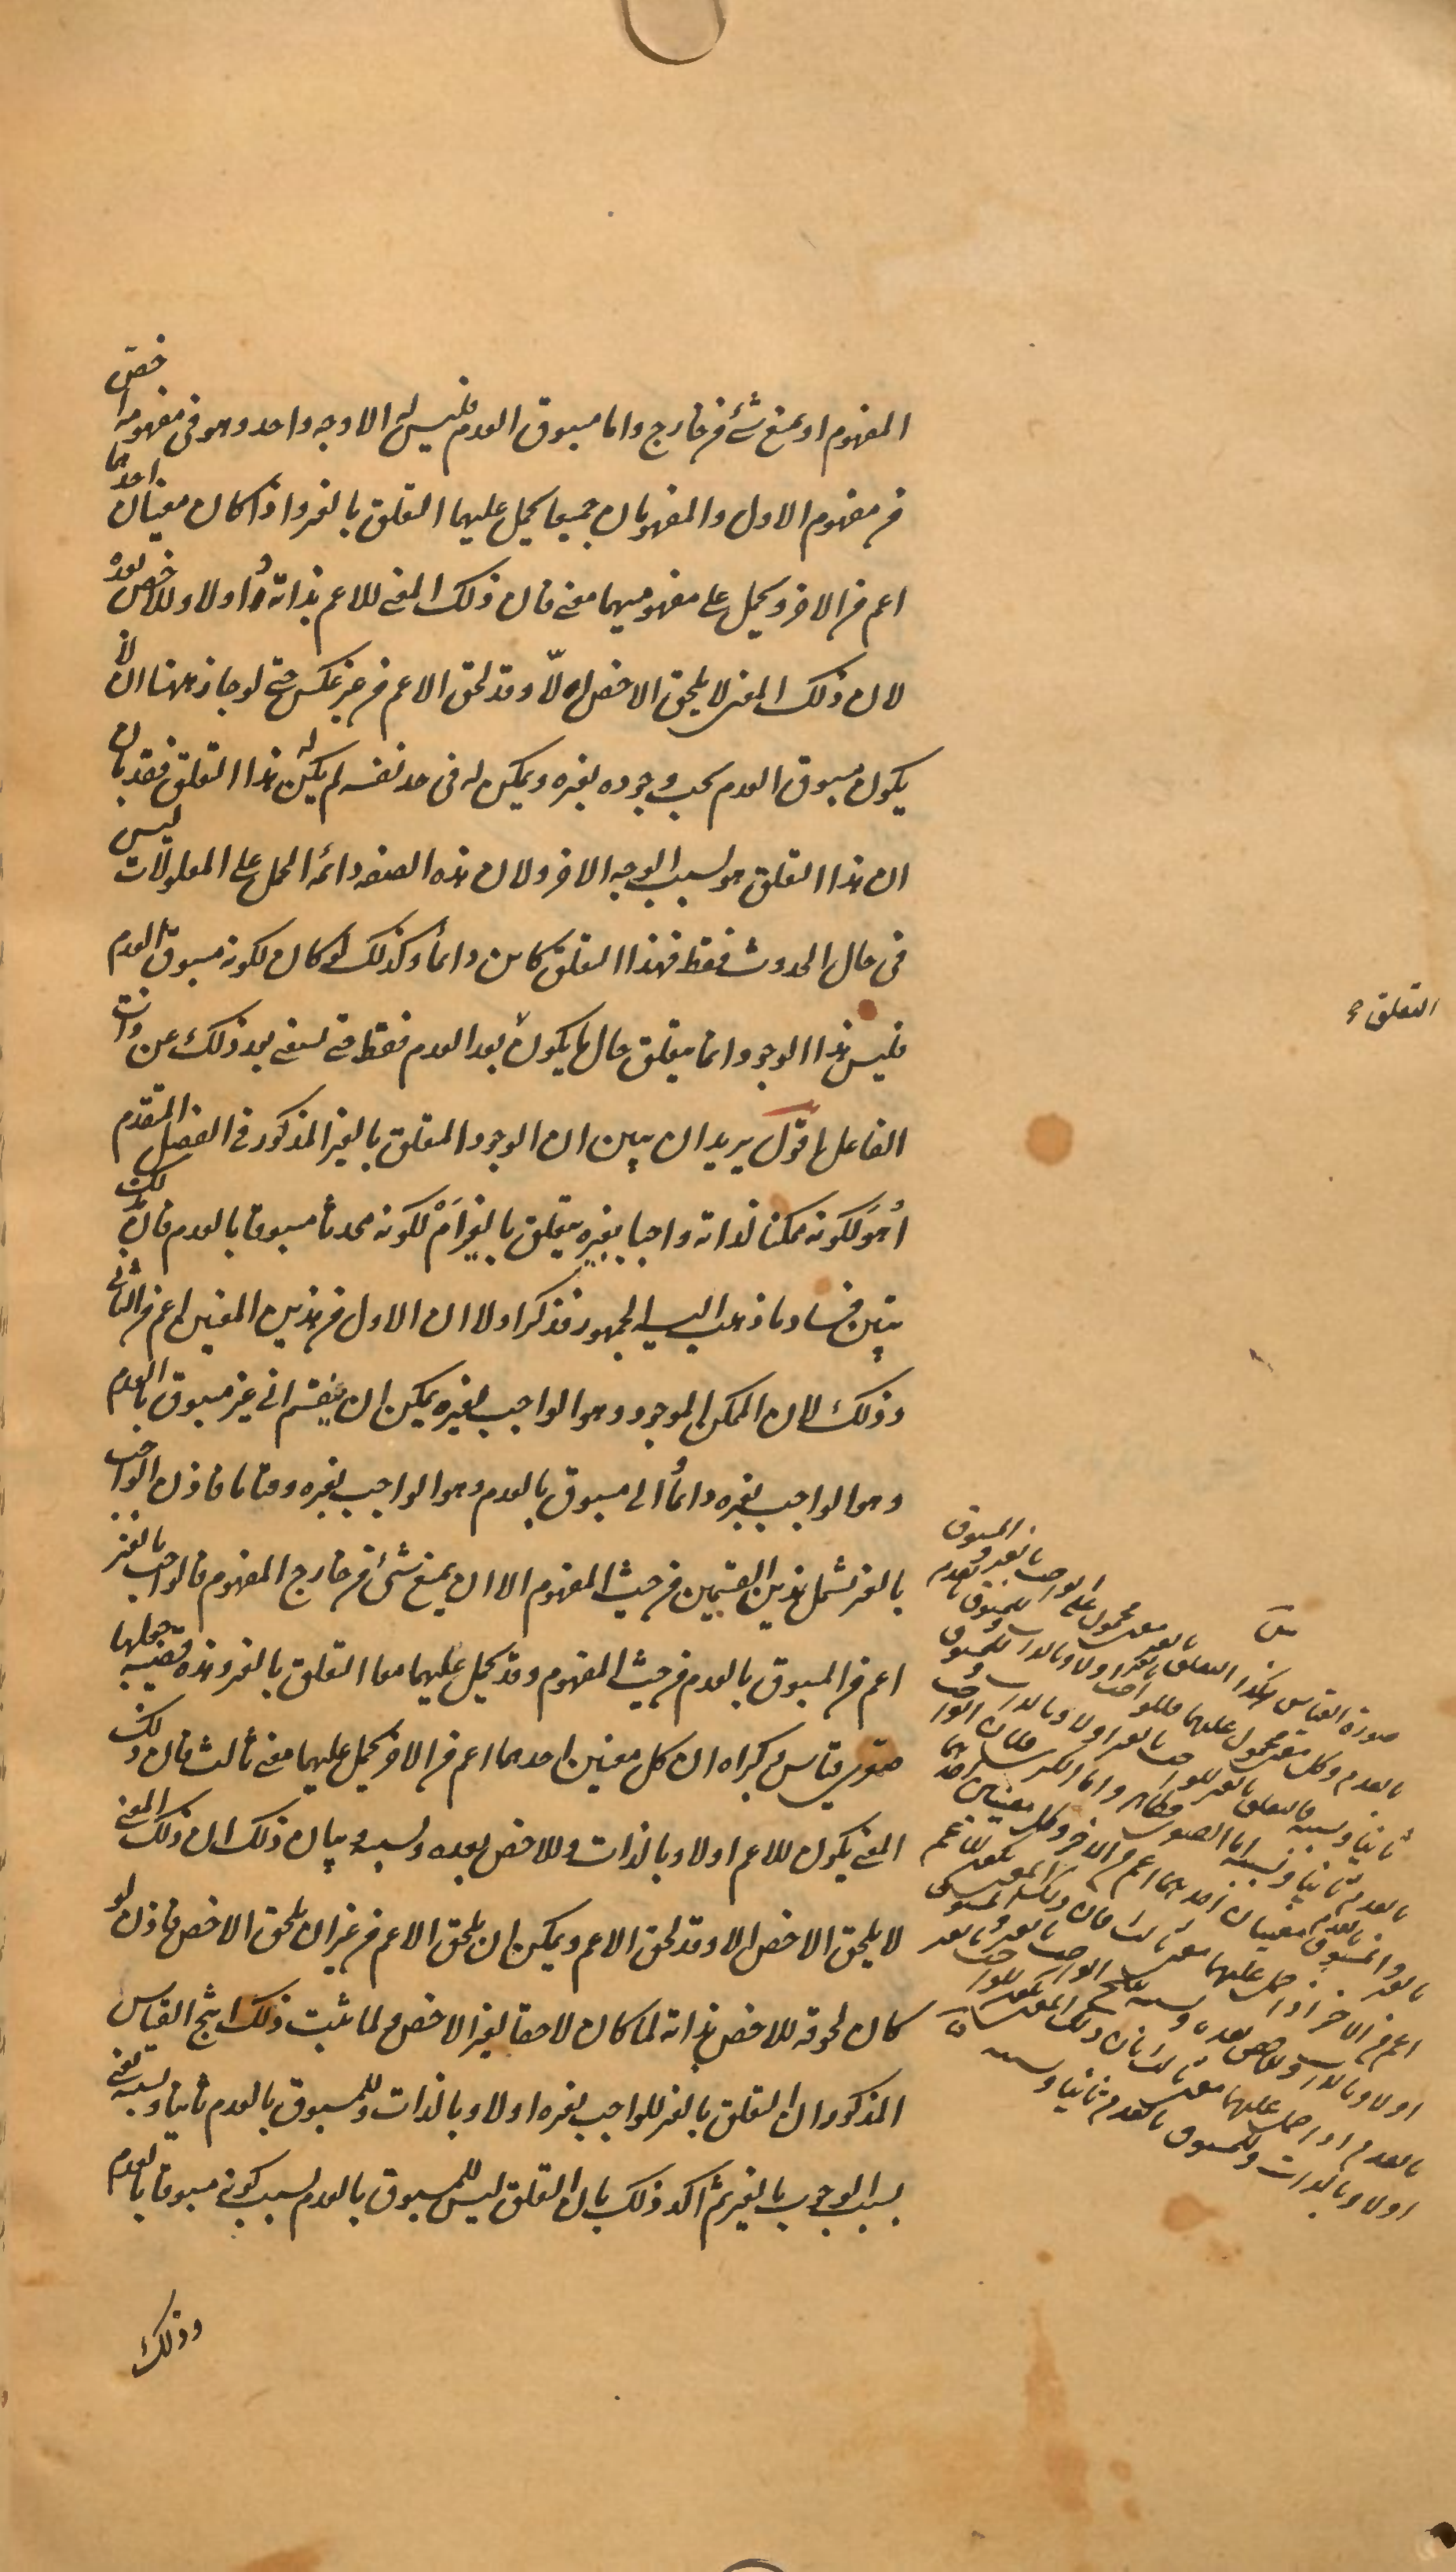 المفهوم او يمنع شئ من خارج واما مسبوق العدم فليس له الا وجه واحد وهو فى مفهومه اخص
من مفهوم الاول والمفهومان جميعا يحمل عليهما التعلق بالغير واذا كان معنيان احدهما
اعم من الاخر ويحمل على مفهوميهما معنى فان ذلك المعنى للاعم بذاته واولا وللاخص بعده
لان ذلك المعنى لا يلحق الاخص الا وقد لحق الاعم من غير عكس حتى لو جاز ههنا ان لا
يكون مسبوق العدم يجب وجوده بغيره ويمكن له فى حد نفسه لم يكن له هذا التعلق فقد بان
ان هذا التعلق هو بسبب الوجه الاخر ولان هذه الصفة دائمة الحمل على المعلولات ليس
فى حال الحدوث فقط فهذا التعلق كائن دائما وكذلك لو كان لكونه مسبوق العدم
فليس هذا الوجود انما يتعلق حال ما يكون بعد العدم فقط حتى يستغنى بعد ذلك عن ذلك
الفاعل اقول يريد ان يبين ان الوجود المتعلق بالغير المذكور فى الفصل المتقدم
أهو لكونه ممكنا لذاته واجبا بغيره يتعلق بالغير أم لكونه محدثا مسبوقا بالعدم فان بذلك
يتبين فساد ما ذهب اليه الجمهور فذكر اولا ان الاول من هذين المعنيين اعم من الثانى
وذلك لان الممكن الموجود وهو الواجب بغيره يمكن ان ينقسم الى غير مسبوق بالعدم
وهو الواجب بغيره دائما والى مسبوق بالعدم وهو الواجب بغيره وقتا ما فاذن الواجب
بالغير يشمل هذين القسمين من حيث المفهوم الا ان يمنع شئ من خارج المفهوم فالواجب بالغير
اعم من المسبوق بالعدم من حيث المفهوم وقد يحمل عليهما معا التعلق بالغير وهذه قضية جعلها
صغرى قياس كبراه ان كل معنيين احدهما اعم من الاخر يحمل عليهما معنى ثالث فان ذلك
المعنى يكون للاعم اولا وبالذات وللاخص بعده وبسببه وبيان ذلك ان ذلك المعنى
لا يلحق الاخص الا وقد لحق الاعم ويمكن ان يلحق الاعم من غير ان يلحق الاخص فاذن لو
كان لحوقه للاخص بذاته لما كان لاحقا لغير الاخص ولما ثبت ذلك انتج القياس
المذكور ان التعلق بالغير للواجب بغيره اولا وبالذات وللمسبوق بالعدم ثانيا وبسببه يعنى
بسبب الوجوب بالغير ثم اكد ذلك بان التعلق ليس للمسبوق بالعدم بسبب كونه مسبوقا بالعدم
وذلك
التعلق
صورة القياس هكذا التعلق بالغير معنى محمول على الواجب بالغير والمسبوق
بالعدم وكل معنى محمول عليهما فللواجب بالغير اولا وبالذات وللمسبوق بالعدم
ثانيا وبسببه فالتعلق بالغير للواجب بالغير اولا وبالذات وللمسبوق
بالعدم ثانيا وبسببه اما الصغرى فظاهر واما الكبرى فلان الواجب
بالغير والمسبوق بالعدم معنيان احدهما اعم من الاخر وكل معنيين احدهما
اعم من الاخر اذا حمل عليهما معنى ثالث فان ذلك المعنى يكون للاعم
اولا وبالذات وللاخص بعده وبسببه
بالعدم اذا حمل عليهما معنى ثالث فان ذلك المعنى يكون للواجب
اولا وبالذات وللمسبوق بالعدم ثانيا وبسببه